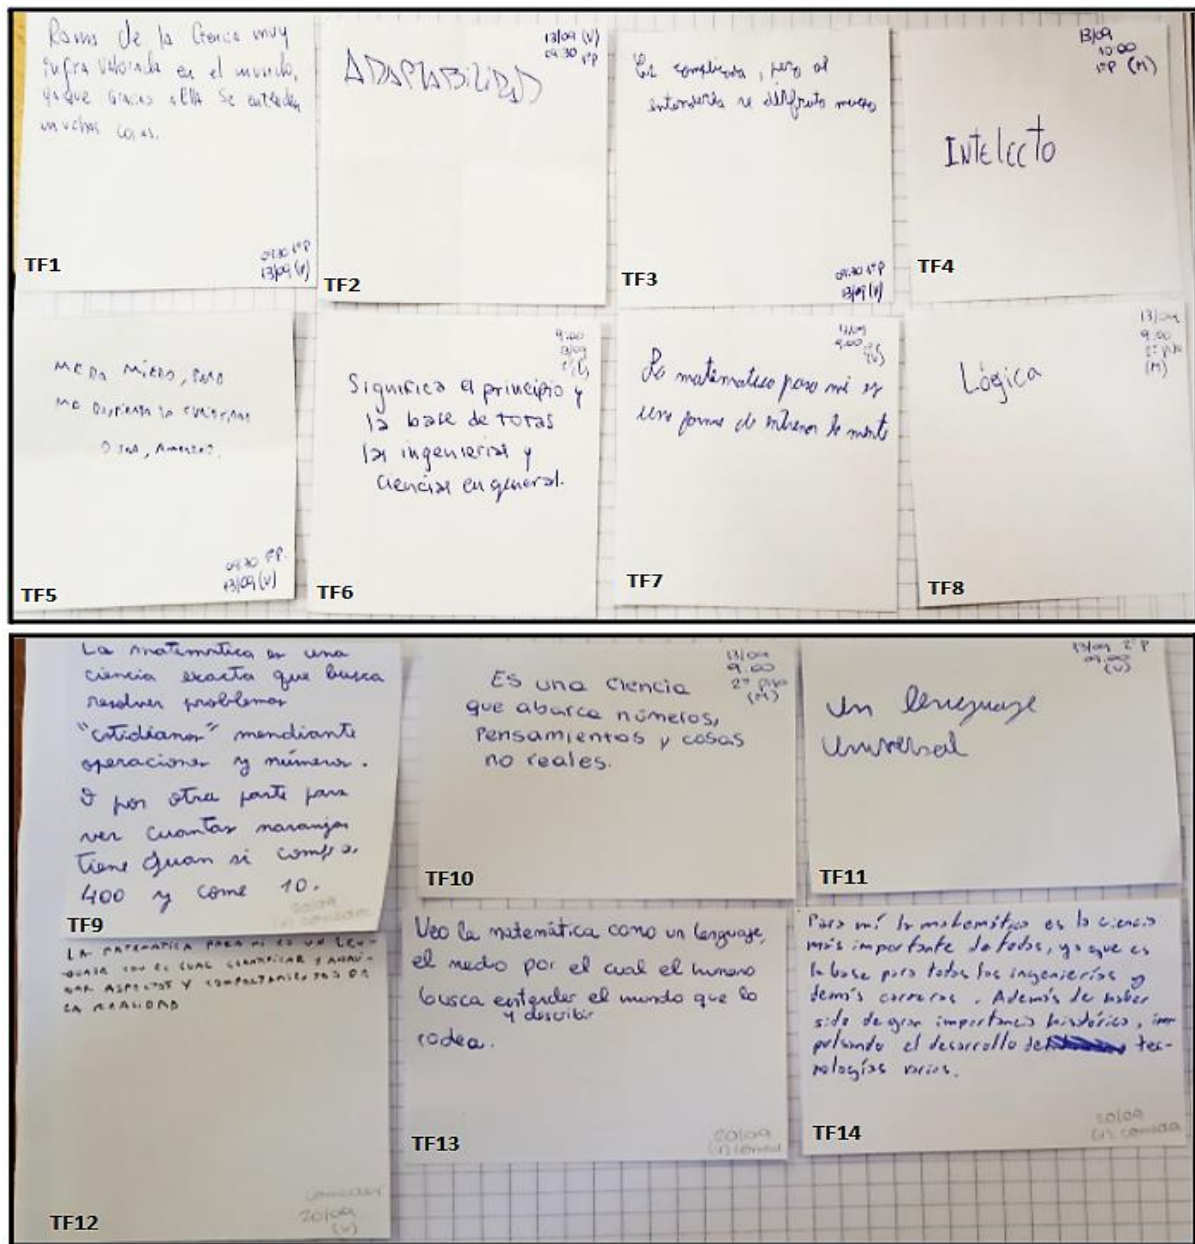 Rama de la Ciencia muy
infra valorada en el mundo,
ya que gracias a ella se entienden
muchas cosas.
09:30 1°P
13/09 (V)
TF1
13/09 (V)
09:30 1°P
ADAPTABILIDAD
TF2
Es complicada, pero al
entenderla se disfruta mucho
09:30 1°P
13/09 (V)
TF3
13/09
10:00
1°P (M)
INTELECTO
TF4
ME DA MIEDO, PERO
ME DESPIERTA LA CURIOSIDAD
09:30 1°P.
13/09 (V)
TF5
9:00
13/09
Significa el principio y
la base de todas
las ingenierías y
ciencias en general.
TF6
13/09
9:00
(V)
La matematica para mi es
una forma de entrenar la mente
TF7
13/09
9:00
2° piso
(M)
Lógica
TF8
La matemática es una
ciencia exacta que busca
resolver problemas
"cotidianos" mendiante
operaciones y números.
O por otra parte para
ver cuantas naranjas
tiene Juan si compra
400 y come 10.
20/09
(V) comedor
TF9
13/09
9:00
2° piso
(M)
Es una ciencia
que abarca números,
pensamientos y cosas
no reales.
TF10
13/09 2°P
09:00
(V)
Un lenguaje
universal
TF11
LA MATEMATICA PARA MI ES UN LEN-
GUAJE CON EL CUAL CUANTIFICAR Y ANALI-
ZAR ASPECTOS Y COMPORTAMIENTOS DE
LA REALIDAD
comedor
20/09
(V)
TF12
Veo la matemática como un lenguaje,
el medio por el cual el humano
busca entender el mundo que lo
y describir
rodea.
20/09
(V) comed
TF13
Para mí la matemática es la ciencia
más importante de todas, ya que es
la base para todas las ingenierías y
demás carreras. Además de haber
sido de gran importancia histórica, im
pulsando el desarrollo de tec-
nologías varias.
20/09
(V) comida
TF14